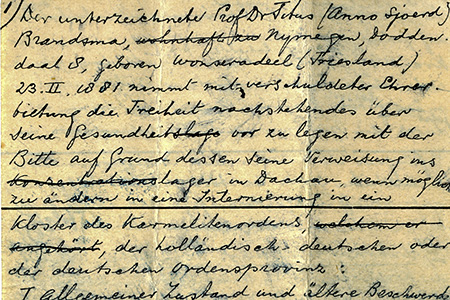 1) Der unterzeichnete Prof Dr Titus (Anno Sjoerd)
Brandsma, wohnhaft zu Nymegen, Dodden-
daal 8, geboren Wonseradeel (Friesland)
23. II. 1881 nimmt mit verschuldeter Ehrer-
bietung die Freiheit nachstehendes über
seine Gesundheitslage vor zu legen mit der
Bitte auf Grund dessen seine Verweisung ins
Konzentrationslager in Dachau, wenn möglich
zu ändern in eine Internierung in ein
Kloster des Karmelitenordens, welchem er
angehört, der holländisch-deutschen oder
der deutschen Ordensprovinz:
I Allgemeiner Zustand und ältere Beschwerd